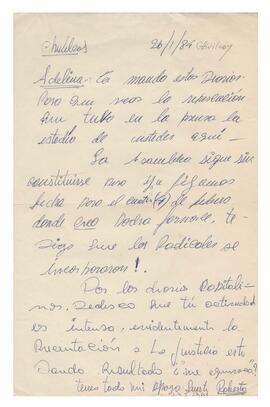 26/1/84
Adelina: te mando estos Diarios
Para que veas la repercusión
que tubo en la prensa la
estadía de ustedes aquí —
La Asamblea sigue sin
constituirse pero ya fijamos
fecha para el cuatro (4) de febrero
donde creo Podrá formarse, te
Digo que los Radicales se
incorporaron!.
Por los diarios Capitali-
nos, Deduzco que tu actividad
es intensa, evidentemente la
Presentación a La Justicia está
Dando Resultados ¿me equivoco?
tenes todo mi apoyo Roberto